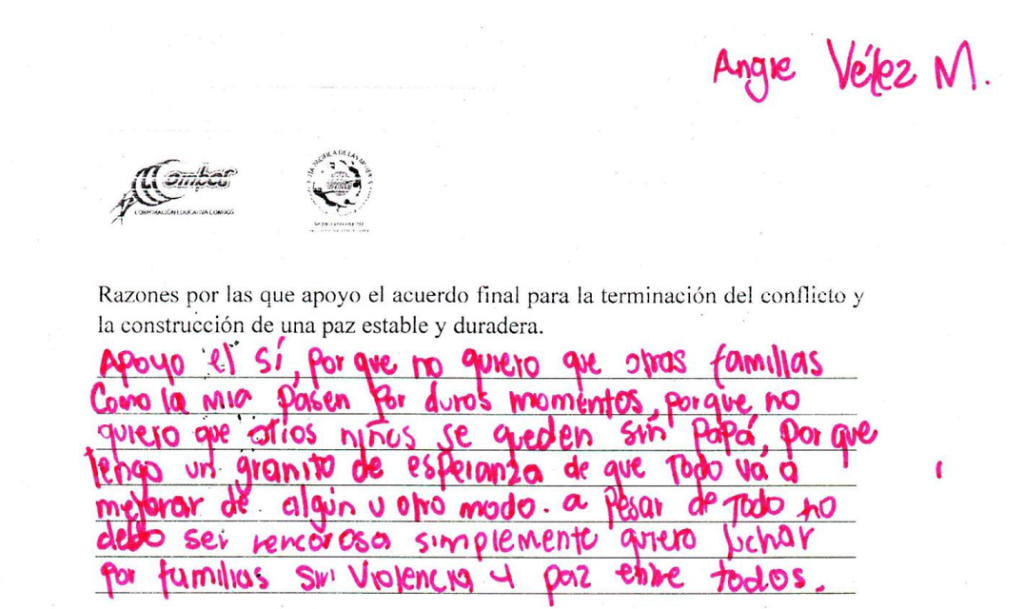 Angie Vélez M.
Combos
CORPORACIÓN EDUCATIVA COMBOS
Razones por las que apoyo el acuerdo final para la terminación del conflicto y
la construcción de una paz estable y duradera.
Apoyo el sí, por que no quiero que otras familias
Como la mia pasen por duros momentos, porque no
quiero que otros niños se queden sin papá, por que
tengo un granito de esperanza de que todo vá a
mejorar de algún u otro modo. a pesar de todo no
debo ser rencorosa simplemente quiero luchar
por familias sin violencia y paz entre todos.